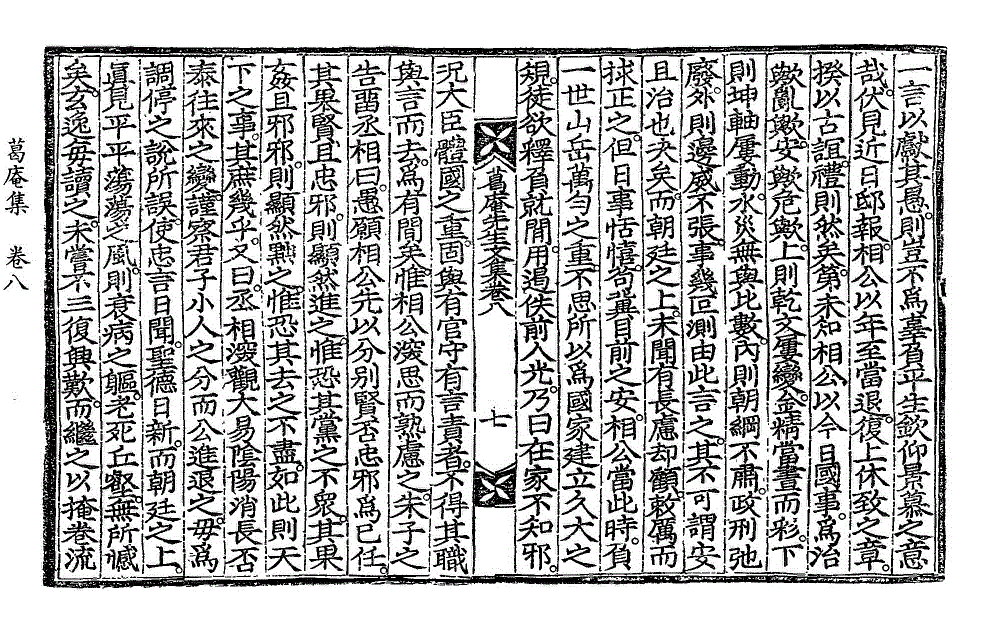 一言以獻其愚則豈不爲辜負平生欽仰景慕之意
哉伏見近日邸報相公以年至當退復上休致之章
揆以古誼禮則然矣第未知相公以今日國事爲治
歟亂歟安歟危歟上則乾文屢變金精當晝而彩下
則坤軸屢動水災無與比數內則朝綱不肅政刑弛
廢外則邊威不張事幾叵測由此言之其不可謂安
且治也决矣而朝廷之上未聞有長慮却顧敕厲而
捄正之但日事恬憘苟冀目前之安相公當此時負
一世山岳萬勻之重不思所以爲國家建立久大之
規徒欲釋負就閒用遏佚前人光乃曰在家不知邪
葛庵先生文集卷八 七
况大臣體國之重固與有官守有言責者不得其職
與言而去爲有間矣惟相公深思而熟慮之朱子之
告留丞相曰愚願相公先以分別賢否忠邪爲己任
其果賢且忠邪則顯然進之惟恐其黨之不衆其果
姦且邪邪則顯然黜之惟恐其去之不盡如此則天
下之事其庶幾乎又曰丞相深觀大易陰陽消長否
泰往來之變謹察君子小人之分而公進退之毋爲
調停之說所誤使忠言日聞聖德日新而朝廷之上
眞見平平蕩蕩之風則衰病之軀老死丘壑無所憾
矣玄逸每讀之未嘗不三復興歎而繼之以掩卷流
葛庵集 卷八